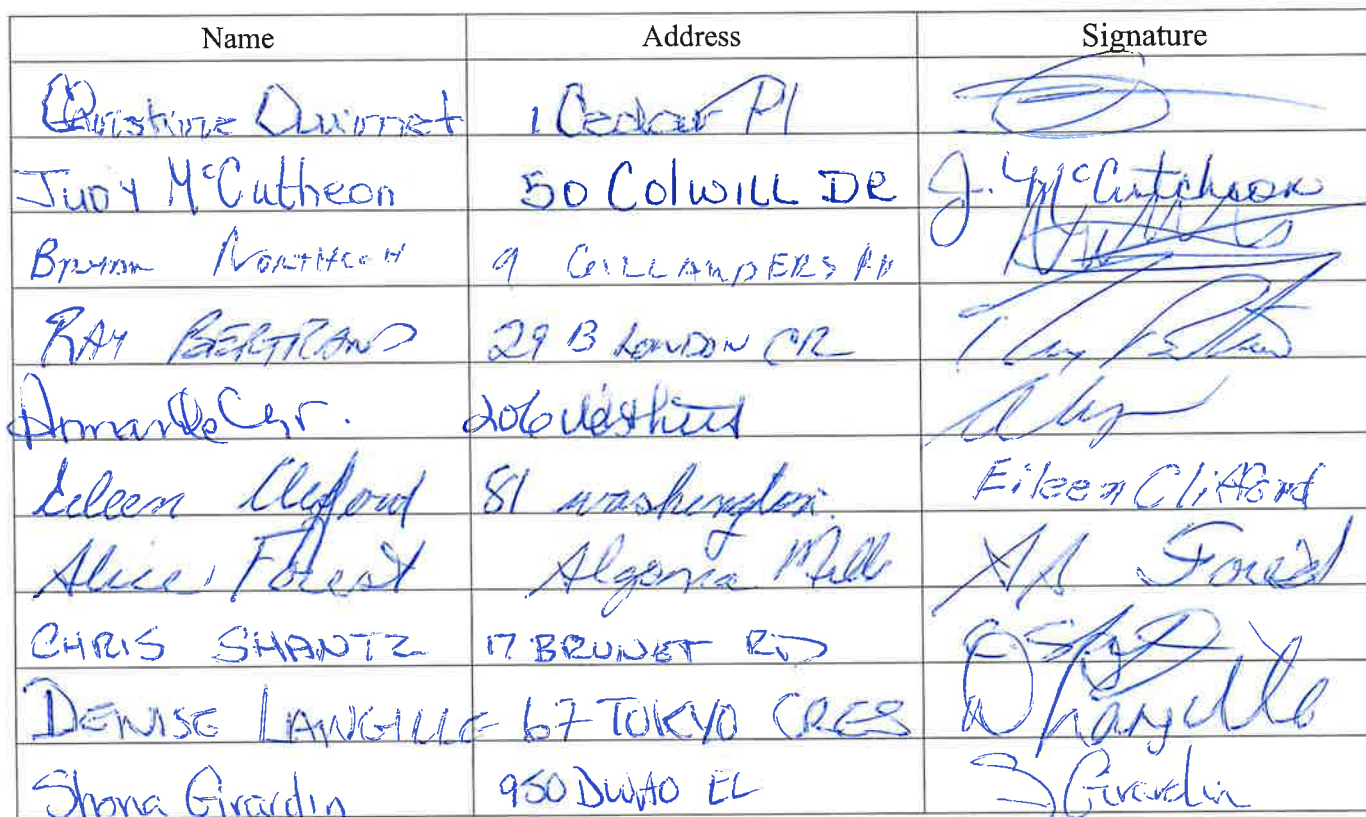 Name Address Signature
Christine Ouimet 1 Cedar Pl
Judy McCutheon 50 Colwill DR J. McCutcheon
9 GILLANDERS
RAY BERTRAND 29 B LONDON CR Ray
Armande Cyr. 206
Eileen Clifford 81 washington. Eileen Clifford
Alice Forest Algoma Mills A Forest
CHRIS SHANTZ 17 BRUNET RD
DENISE LANGILLE 67 TOKYO CRES D Langille
Shona Girardin 950 S Girardin